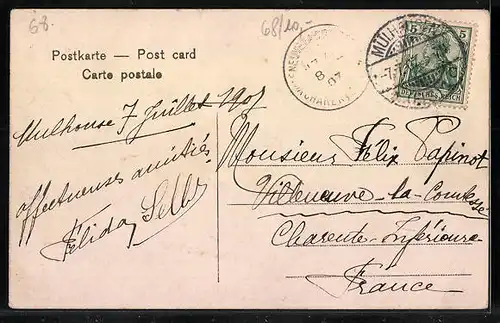 68.
68/10.-
Postkarte — Post card
Carte postale
5 5
DEUTSCHES REICH
8
07
Mulhouse 7 Juillet 1907
affectueuses amitiés
Félida
Monsieur Félix Papinot
Villeneuve-la-Comtesse
Charente-Inférieure-
France